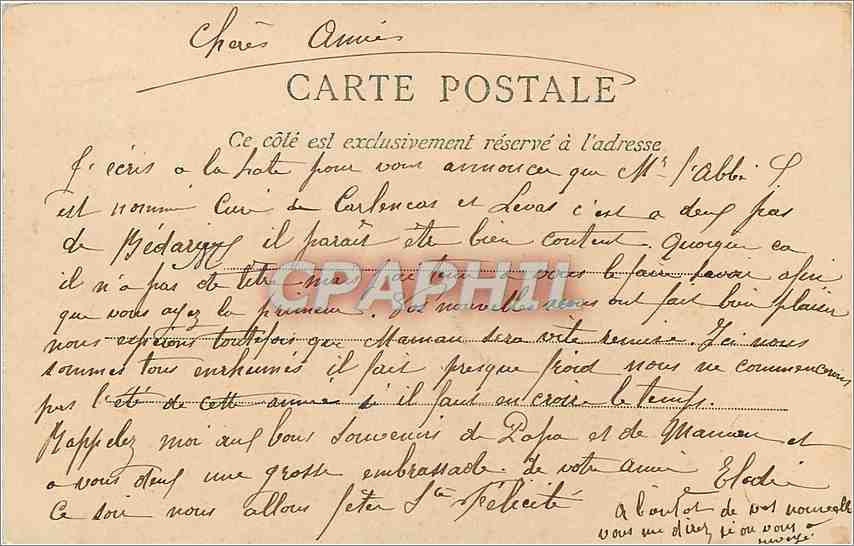 Chères Amies
CARTE POSTALE
Ce côté est exclusivement réservé à l'adresse
J'écris a la hate pour vous annoncer que Mr l'Abbé
est nommé Curé de Carlencas et Levas c'est a deux pas
de Bédarieux il paraît être bien content. Quoique ca
il n'a pas de titre mais j'ai tenu a vous le faire savoir afin
que vous ayez la primeur. Vos nouvelles nous ont fait bien plaisir
nous esperons toutefois que Maman sera vite remise. Ici nous
sommes tous enrhumés il fait presque froid nous ne commencerons
pas l'été de cette année s'il faut en croire le temps.
Rappelez moi aux bons souvenirs de Papa et de Maman et
a vous deux une grosse embrassade de votre amie Elodie
Ce soir nous allons fêter Ste Félicité
de vos nouvelles
vous me direz si on vous a
CPAPHIL